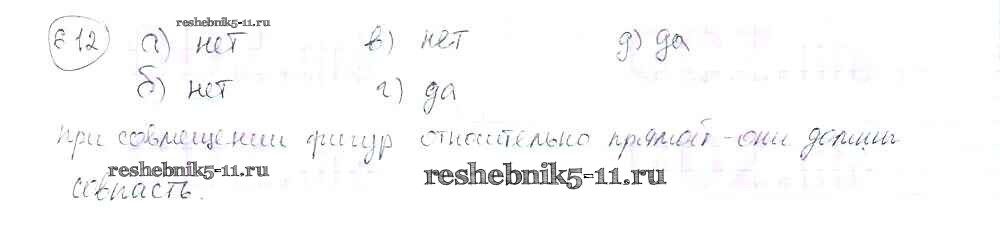 reshebnik5-11.ru
612) а) нет в) нет д) да
б) нет г) да
При совмещении фигур относительно прямой - они должны
reshebnik5-11.ru
совпасть.
reshebnik5-11.ru